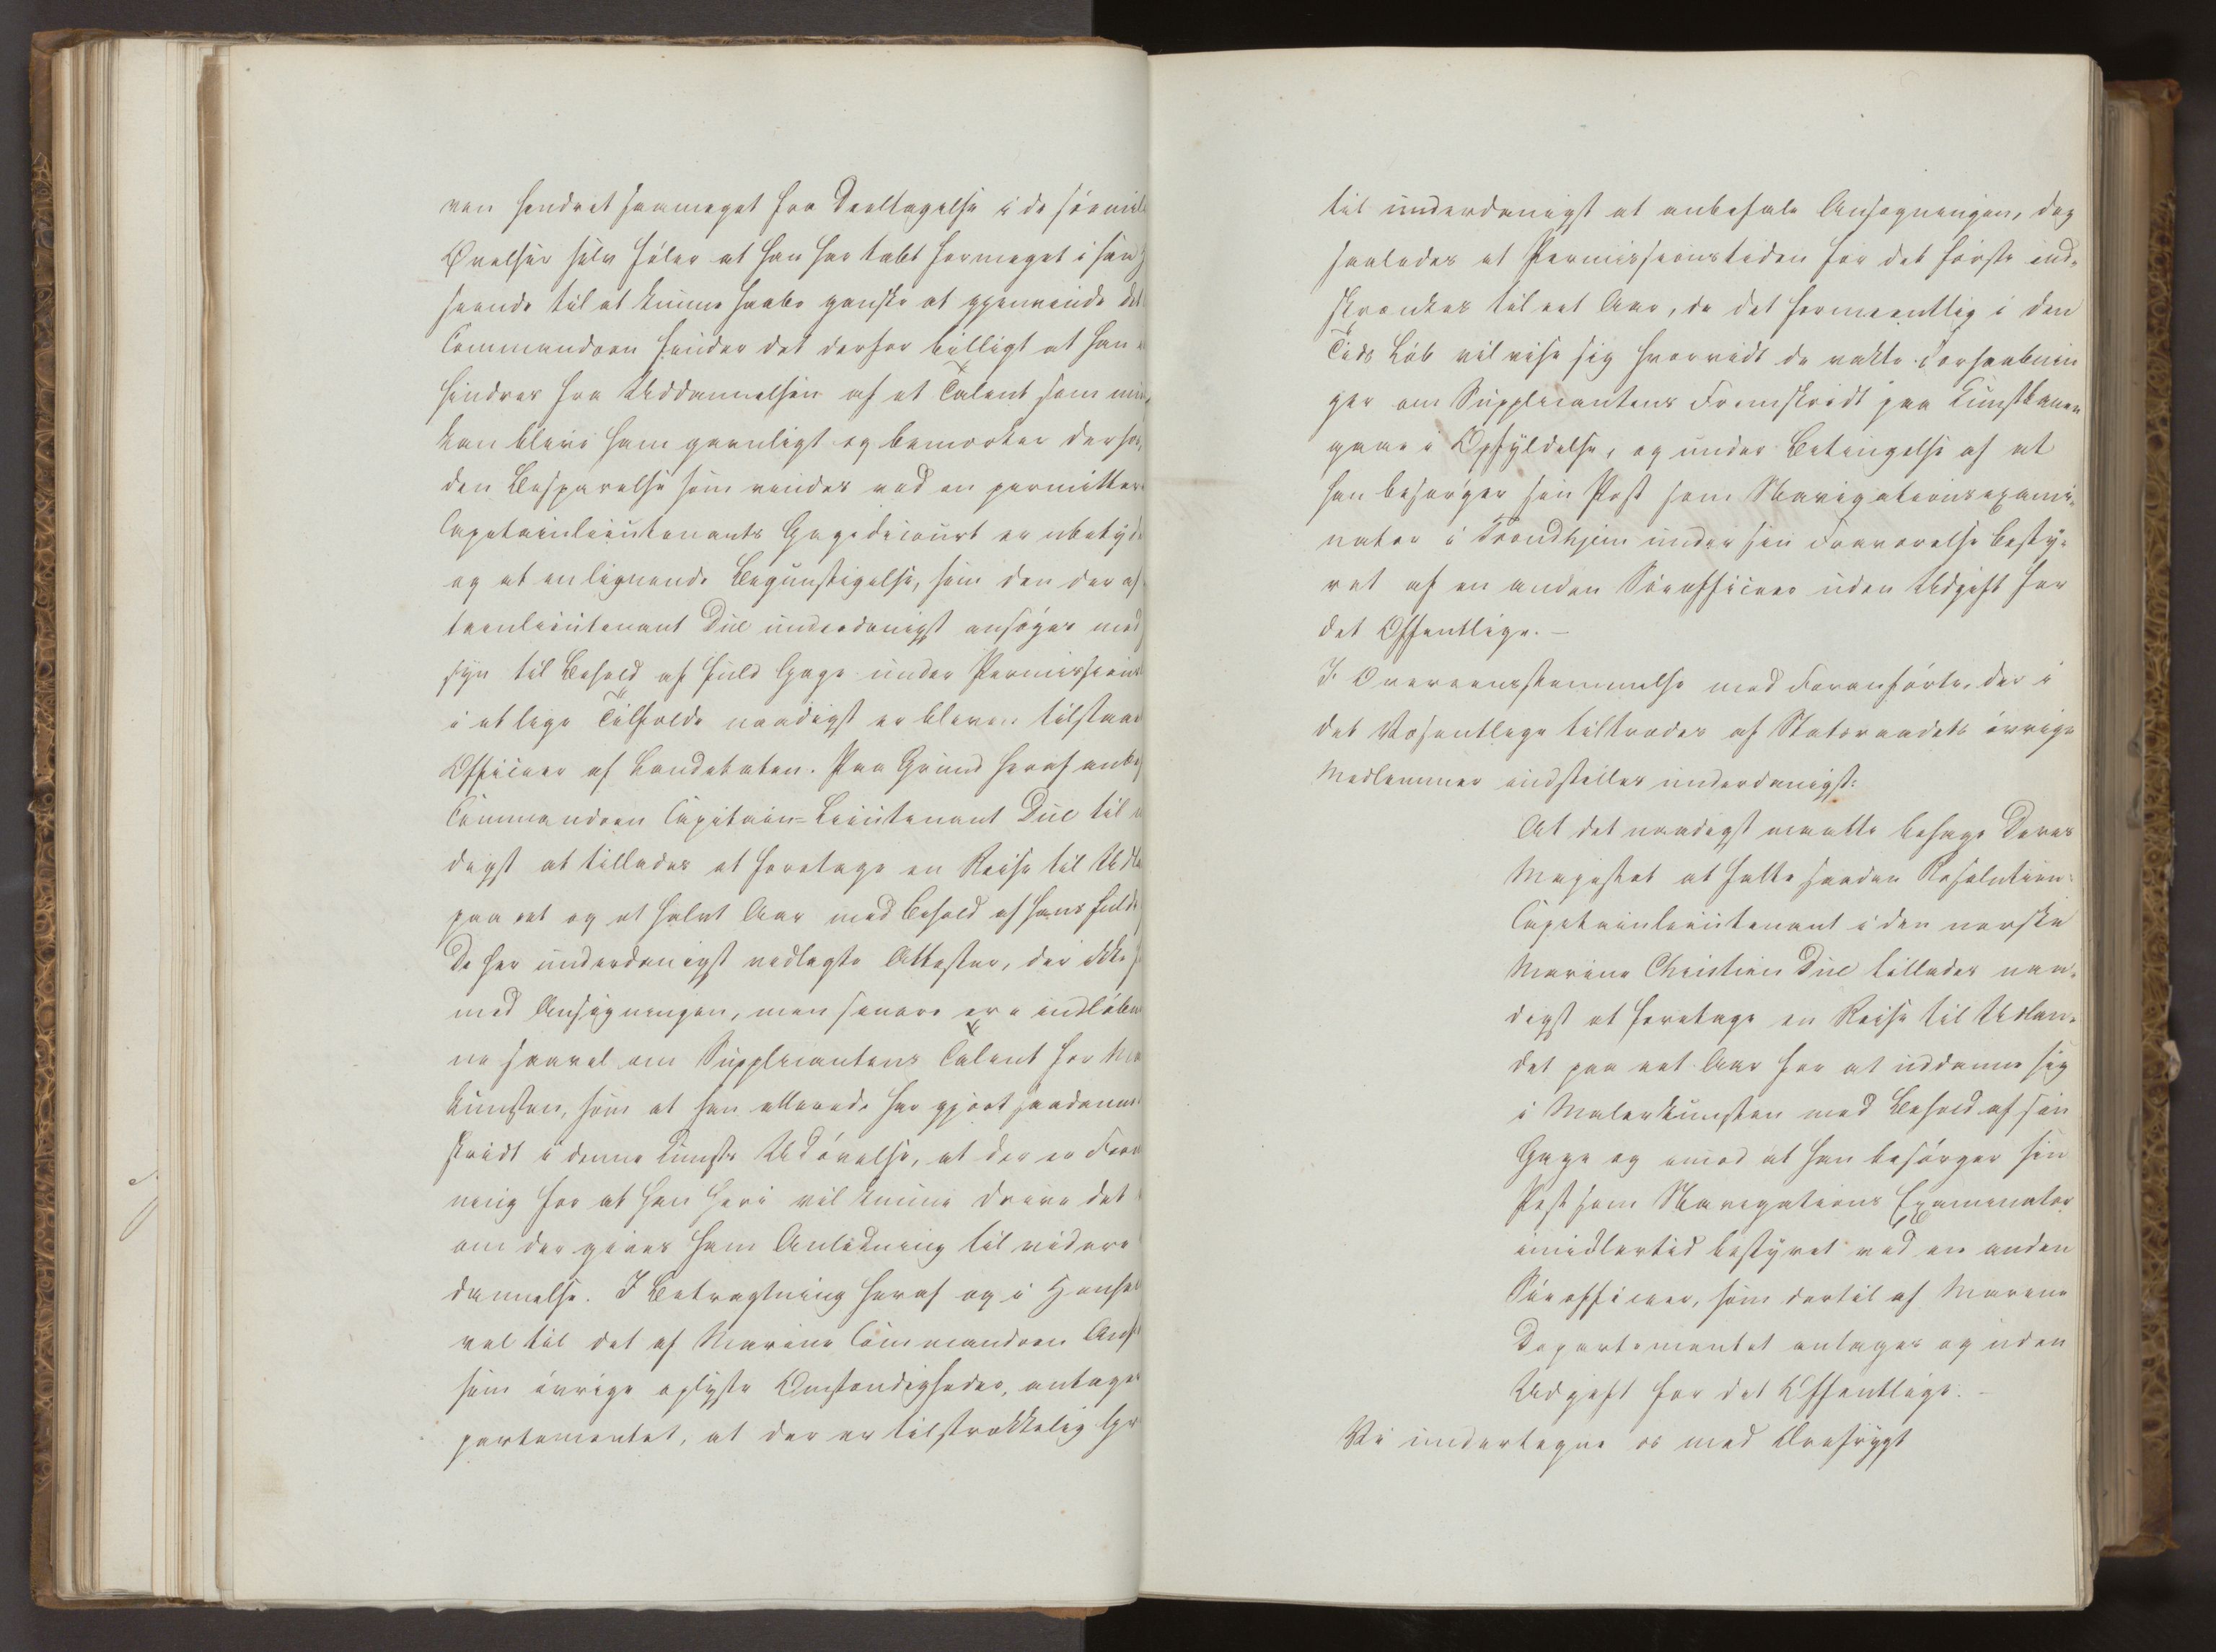 ven hendret saameget fra Deeltagelse i de sömil
Övelser selv föler at han har tabt formeget i hen
seende til at kunne haabe ganske at gjenvinde det
Commandoen finder det derfor billigt at han
hindres fra Uddannelsen af et Talent som
kan blive ham gavnligt og bemærker derfor,
den Besparelse som vindes ved en permitter
Capitainlieutenants Gagedecourt er ubetyde
og at en lignende Begunstigelse, som den der af
tainlieutenant Due underdanigst ansöges med
syn til Behold af fuld Gage under Permission
i et lige Tilfælde naadigst er bleven tilstaaet
Officerer af Landetaten. Paa Grund heraf anbe
Commandoen Capitain-Lieutenant Due til
digst at tillades at foretage en Reise til Udla
paa eet og et halvt Aar med Behold af hans fulde
De her underdanigst vedlagte Attester, der ikke
med Ansögningen, men senere ere indlöbne
ne saavel om Supplicantens Talent for Ma
kunsten, som at han allerede har gjort saadanne
skridt i denne Kunsts Udövelse, at der er Form
ning for at han heri vil kunne drive det
om der gives ham Anledning til videre
dannelse. I Betragtning heraf og i Henseende
vel til det af Marine Commandoen Anf
som övrige oplyste Omstændigheder, antager
partementet, at der er tilstrækkelig Gr
til underdanigst at anbefale Ansøgningen, dog
saaledes at Permissionstiden for det förste ind-
skrænkes til eet Aar, da det formeentlig i den
Tids Löb vil vise sig hvorvidt de vakte Forhaabnin
ger om Supplicantens Fremskridt paa Kunstbanen
gaae i Opfyldelse, og under Betingelse af at
han besörger sin Post som Navigationsexami-
nator i Trondhjem under sin Fraværelse besty-
ret af en anden Söeofficeer uden Udgift for
det Offentlige. —
I Overeensstemmelse med Foranförte, der i
det Væsentlige tiltrædes af Statsraadets övrige
Medlemmer indstilles underdanigst:
At det naadigst maatte behage Deres
Majestæt at fatte saadan Resolution:
Capitainlieutenant i den norske
Marine Christian Due tillades naa-
digst at foretage en Reise til Udlan-
det paa eet Aar for at uddanne sig
i Malerkunsten med Behold af sin
Gage og imod at han besörger sin
Post som Navigations Examinator
imidlertid bestyret ved en anden
Söeofficeer, som dertil af Marine
Departementet antages og uden
Udgift for det Offentlige. —
Vi undertegne os med Ærefrygt